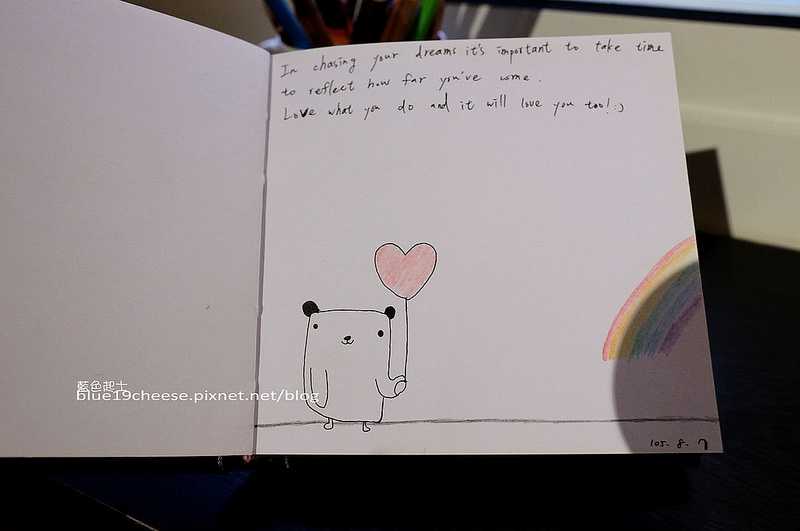 In chasing your dreams it's important to take time
to reflect how far you've come.
Love what you do and it will love you too! :)
藍色起士
blue19cheese.pixnet.net/blog
105. 8. 7